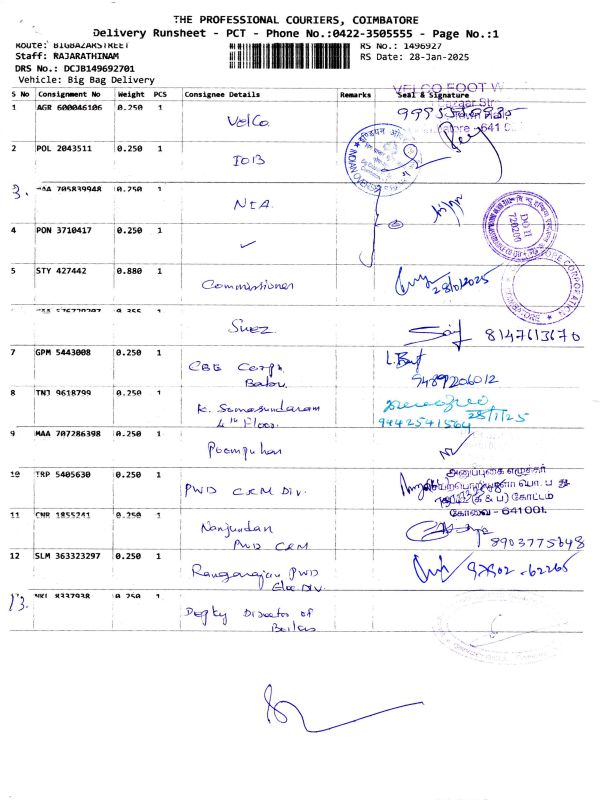 THE PROFESSIONAL COURIERS, COIMBATORE
Delivery Runsheet - PCT - Phone No.:0422-3505555 - Page No.:1
Route: BIGBAZARSTREET RS No.: 1496927
Staff: RAJARATHINAM RS Date: 28-Jan-2025
DRS No.: DCJB149692701
Vehicle: Big Bag Delivery
S No Consignment No Weight PCS Consignee Details Remarks Seal & Signature
VELCO FOOT W
1 AGR 600046106 0.250 1
Velco
2 POL 2043511 0.250 1
IOB
3. MAA 705839948 0.250 1
NIA
DO II
720200
4 PON 3710417 0.250 1
5 STY 427442 0.880 1
Commissioner 28/01/2025
Suez 8147613670
7 GPM 5443008 0.250 1
CBE Corpn
Babu 9489206012
8 TNJ 9618799 0.250 1
K. Somasundaram
4th Floor 9442541564 28/1/25
9 MAA 707286398 0.250 1
Poompuhar
10 TRP 5405630 0.250 1
PWD C&M DIV.
கோவை - 641 001.
11 CNR 1855241 0.250 1
Nanjundan
PWD C&M 8903775648
12 SLM 363323297 0.250 1
Ranganajan PWD
Elec DIV. 97902-62265
13. NKL 8337938 0.250 1
Depty Director of
Boilers